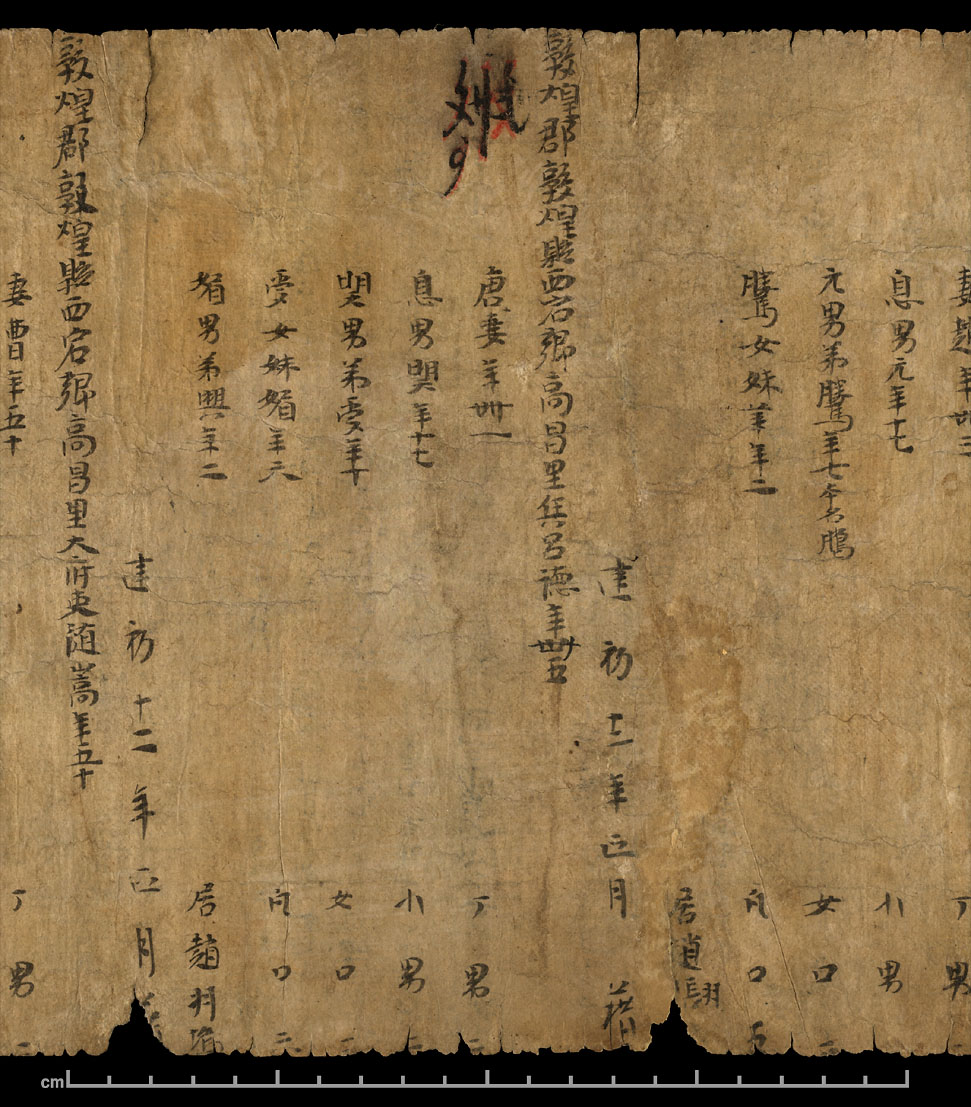 妻趙年卅三 丁男
息男元年十七 小男
元男弟騰年七本名鵬 女口二
騰女妹羊年二 凡口五
居趙羽
建初十二年正月籍
敦煌郡敦煌縣西宕鄉高昌里兵呂德年卌五
唐妻年卌一 丁男二
息男年十七 小男二
男弟受年十 女口二
受女妹媚年六 凡口六
媚男弟興年二 居趙羽塢
建初十二年正月籍
敦煌郡敦煌縣西宕鄉高昌里大府吏隨嵩年五十
妻曹年五十 丁男二